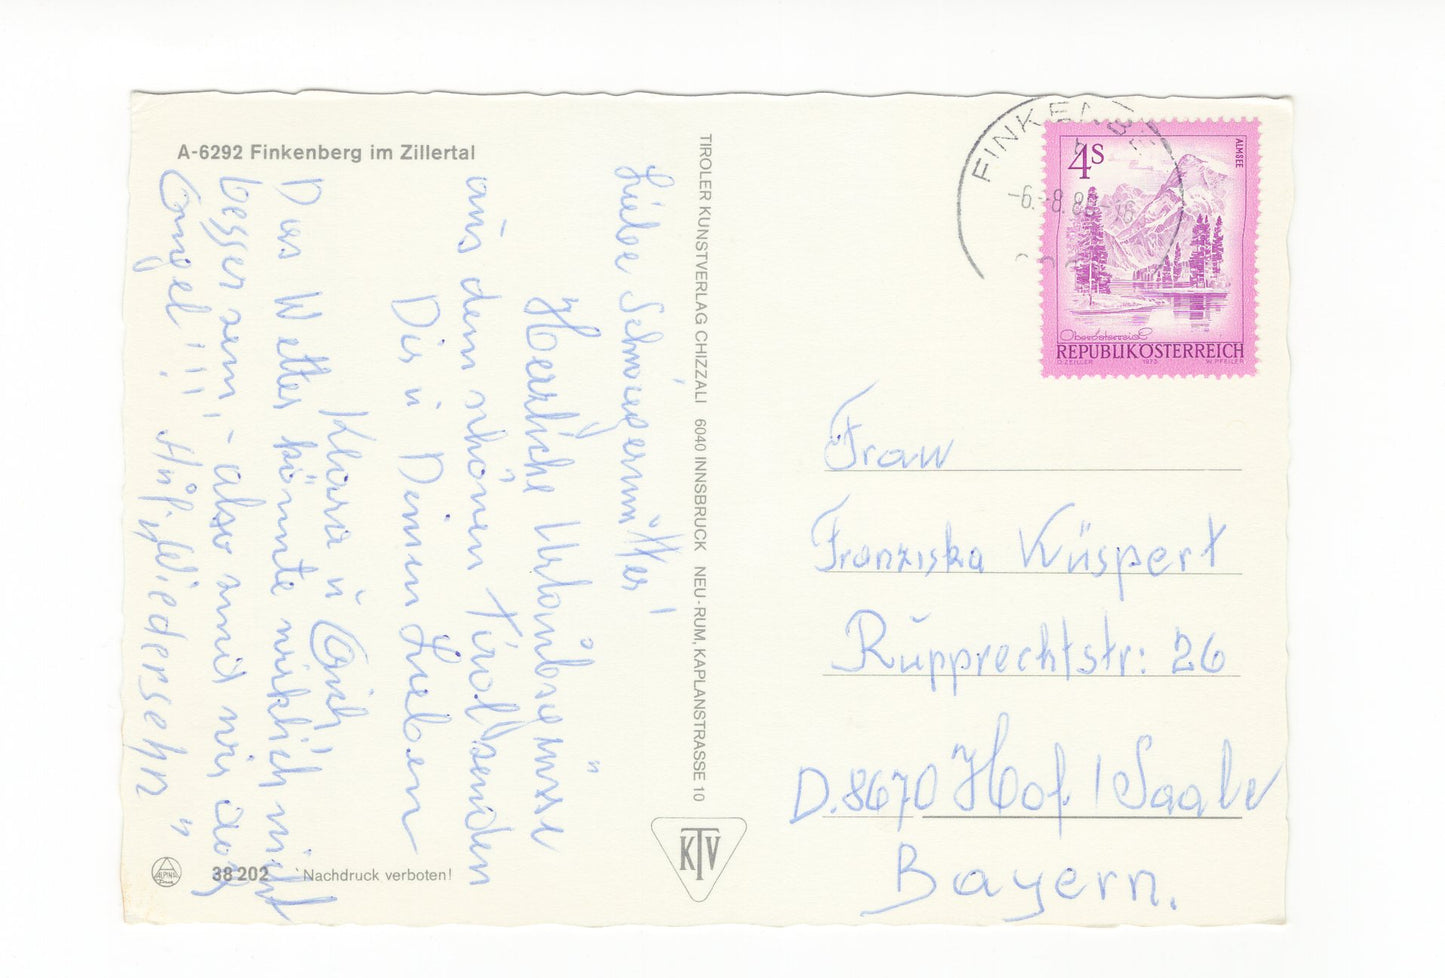 A-6292 Finkenberg im Zillertal
Liebe Schwiegermutter!
Herrliche Urlaubsgrüsse
aus dem schönen Tirol senden
Dir u Deinen Lieben
Klara u
Das Wetter könnte wirklich nicht
besser sein - also sind wir doch
Engel!!! Auf Wiedersehn"
38 202 Nachdruck verboten!
TIROLER KUNSTVERLAG CHIZZALI 6040 INNSBRUCK NEU-RUM, KAPLANSTRASSE 10
KTV
FINKENB
-6.-8.8 -16
4S
ALMSEE
Oberösterreich
REPUBLIK ÖSTERREICH
O. ZEILLER 1973 W. PFEILER
Frau
Franziska Küspert
Rupprechtstr: 26
D.8670 Hof / Saale
Bayern.